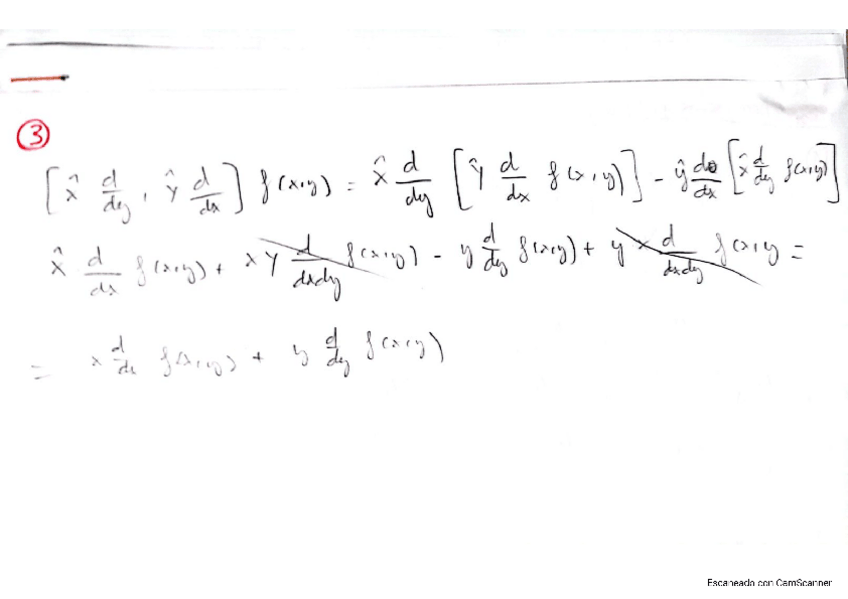 ③
[x̂ d/dy , ŷ d/dx] f(x,y) = x̂ d/dy [ŷ d/dx f(x,y)] - ŷ d/dx [x̂ d/dy f(x,y)]
x̂ d/dx f(x,y) + xy d/dxdy f(x,y) - y d/dy f(x,y) + y x d/dxdy f(x,y =
= x d/dx f(x,y) + y d/dy f(x,y)
Escaneado con CamScanner